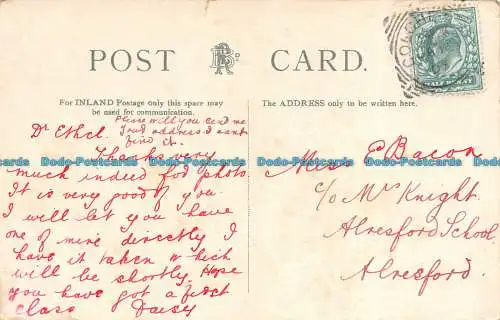 POST CARD.
For INLAND Postage only this space may
be used for communication.
The ADDRESS only to be written here.
Please will you send me
Your address I cant
find it.
Dr Ethel.
Thanks very
much indeed for photo.
It is very good of you.
I will let you have
one of mine directly I
have it taken which
will be shortly. Hope
you have got a first
class Daisy
Miss E Bacon
c/o Mrs Knight.
Alresford School
Alresford.
Daws-Postcards